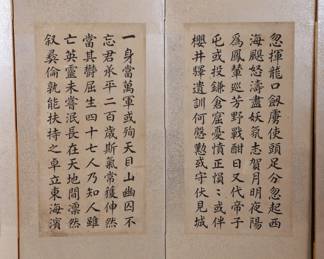 忽揮龍口劔虜使頭足分忽起西
海颶怒濤盡妖氛志賀月明夜陽
為鳳輦巡芳野戰酣日又代帝子
屯或投鎌倉窟憂憤正愪〻或伴
櫻井驛遺訓何慇懃或守伏見城
一身當萬軍或殉天目山幽囚不
忘君承平二百歳斯氣常獲伸然
當其鬱屈生四十七人乃知人雖
亡英靈未嘗泯長在天地間凛然
叙彝倫孰能扶持之卓立東海濱